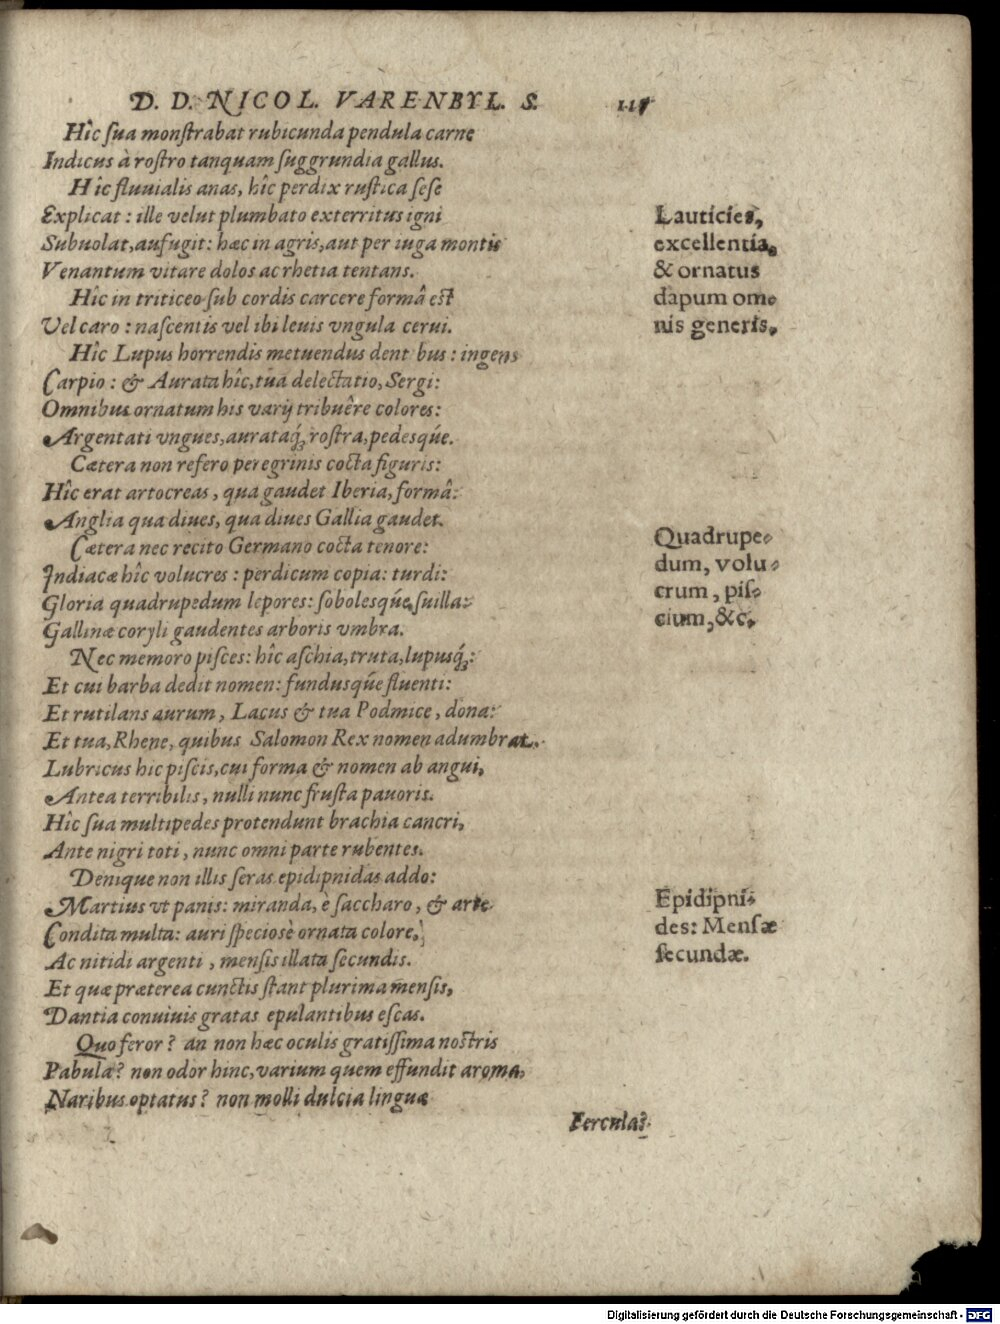 D. D. NICOL. VARENBYL. S.
Hîc ſua monſtrabat rubicunda pendula carne
Indicus à roſtro tanquam ſuggrundia gallus.
Hîc fluuialis anas, hîc perdix ruſtica ſeſe
Explicat: ille velut plumbato exterritus igni
Subuolat, aufugit: hæc in agris, aut per iuga montis
Venantum vitare dolos ac rhetia tentans.
Hîc in triticeo ſub cordis carcere formâ eſt
Vel caro: naſcentis vel ibi leuis vngula cerui.
Hîc Lupus horrendis metuendus dent bus: ingens
Carpio: & Aurata hîc, tua delectatio, Sergi:
Omnibus ornatum his varij tribuêre colores:
Argentati vngues, aurataq́; roſtra, pedesq́ue.
Cætera non refero peregrinis cocta figuris:
Hîc erat artocreas, qua gaudet Iberia, formâ:
Anglia qua diues, qua diues Gallia gaudet.
Cætera nec recito Germano cocta tenore:
Indiacæ hîc volucres: perdicum copia: turdi:
Gloria quadrupedum lepores: ſobolesq́ue ſuilla:
Gallinæ coryli gaudentes arboris vmbra.
Nec memoro piſces: hîc aſchia, truta, lupusq́;:
Et cui barba dedit nomen: fundusq́ue fluenti:
Et rutilans aurum, Lacus & tua Podmice, dona:
Et tua, Rhene, quibus Salomon Rex nomen adumbrat.
Lubricus hic piſcis, cui forma & nomen ab angui,
Antea terribilis, nulli nunc fruſta pauoris.
Hîc ſua multipedes protendunt brachia cancri,
Ante nigri toti, nunc omni parte rubentes.
Denique non illis ſeras epidipnidas addo:
Martius vt panis: miranda, e ſaccharo, & arte
Condita multa: auri ſpeciosè ornata colore,
Ac nitidi argenti, menſis illata ſecundis.
Et quæ præterea cunctis ſtant plurima menſis,
Dantia conuiuis gratas epulantibus eſcas.
Quo feror? an non hæc oculis gratiſſima noſtris
Pabula? non odor hinc, varium quem effundit aroma,
Naribus optatus? non molli dulcia linguæ
Fercula?
Lauticies,
excellentia,
& ornatus
dapum om-
nis generis.
Quadrupe-
dum, volu-
crum, piſ-
cium, &c.
Epidipni-
des: Menſæ
ſecundæ.
Digitalisierung gefördert durch die Deutsche Forschungsgemeinschaft - DFG